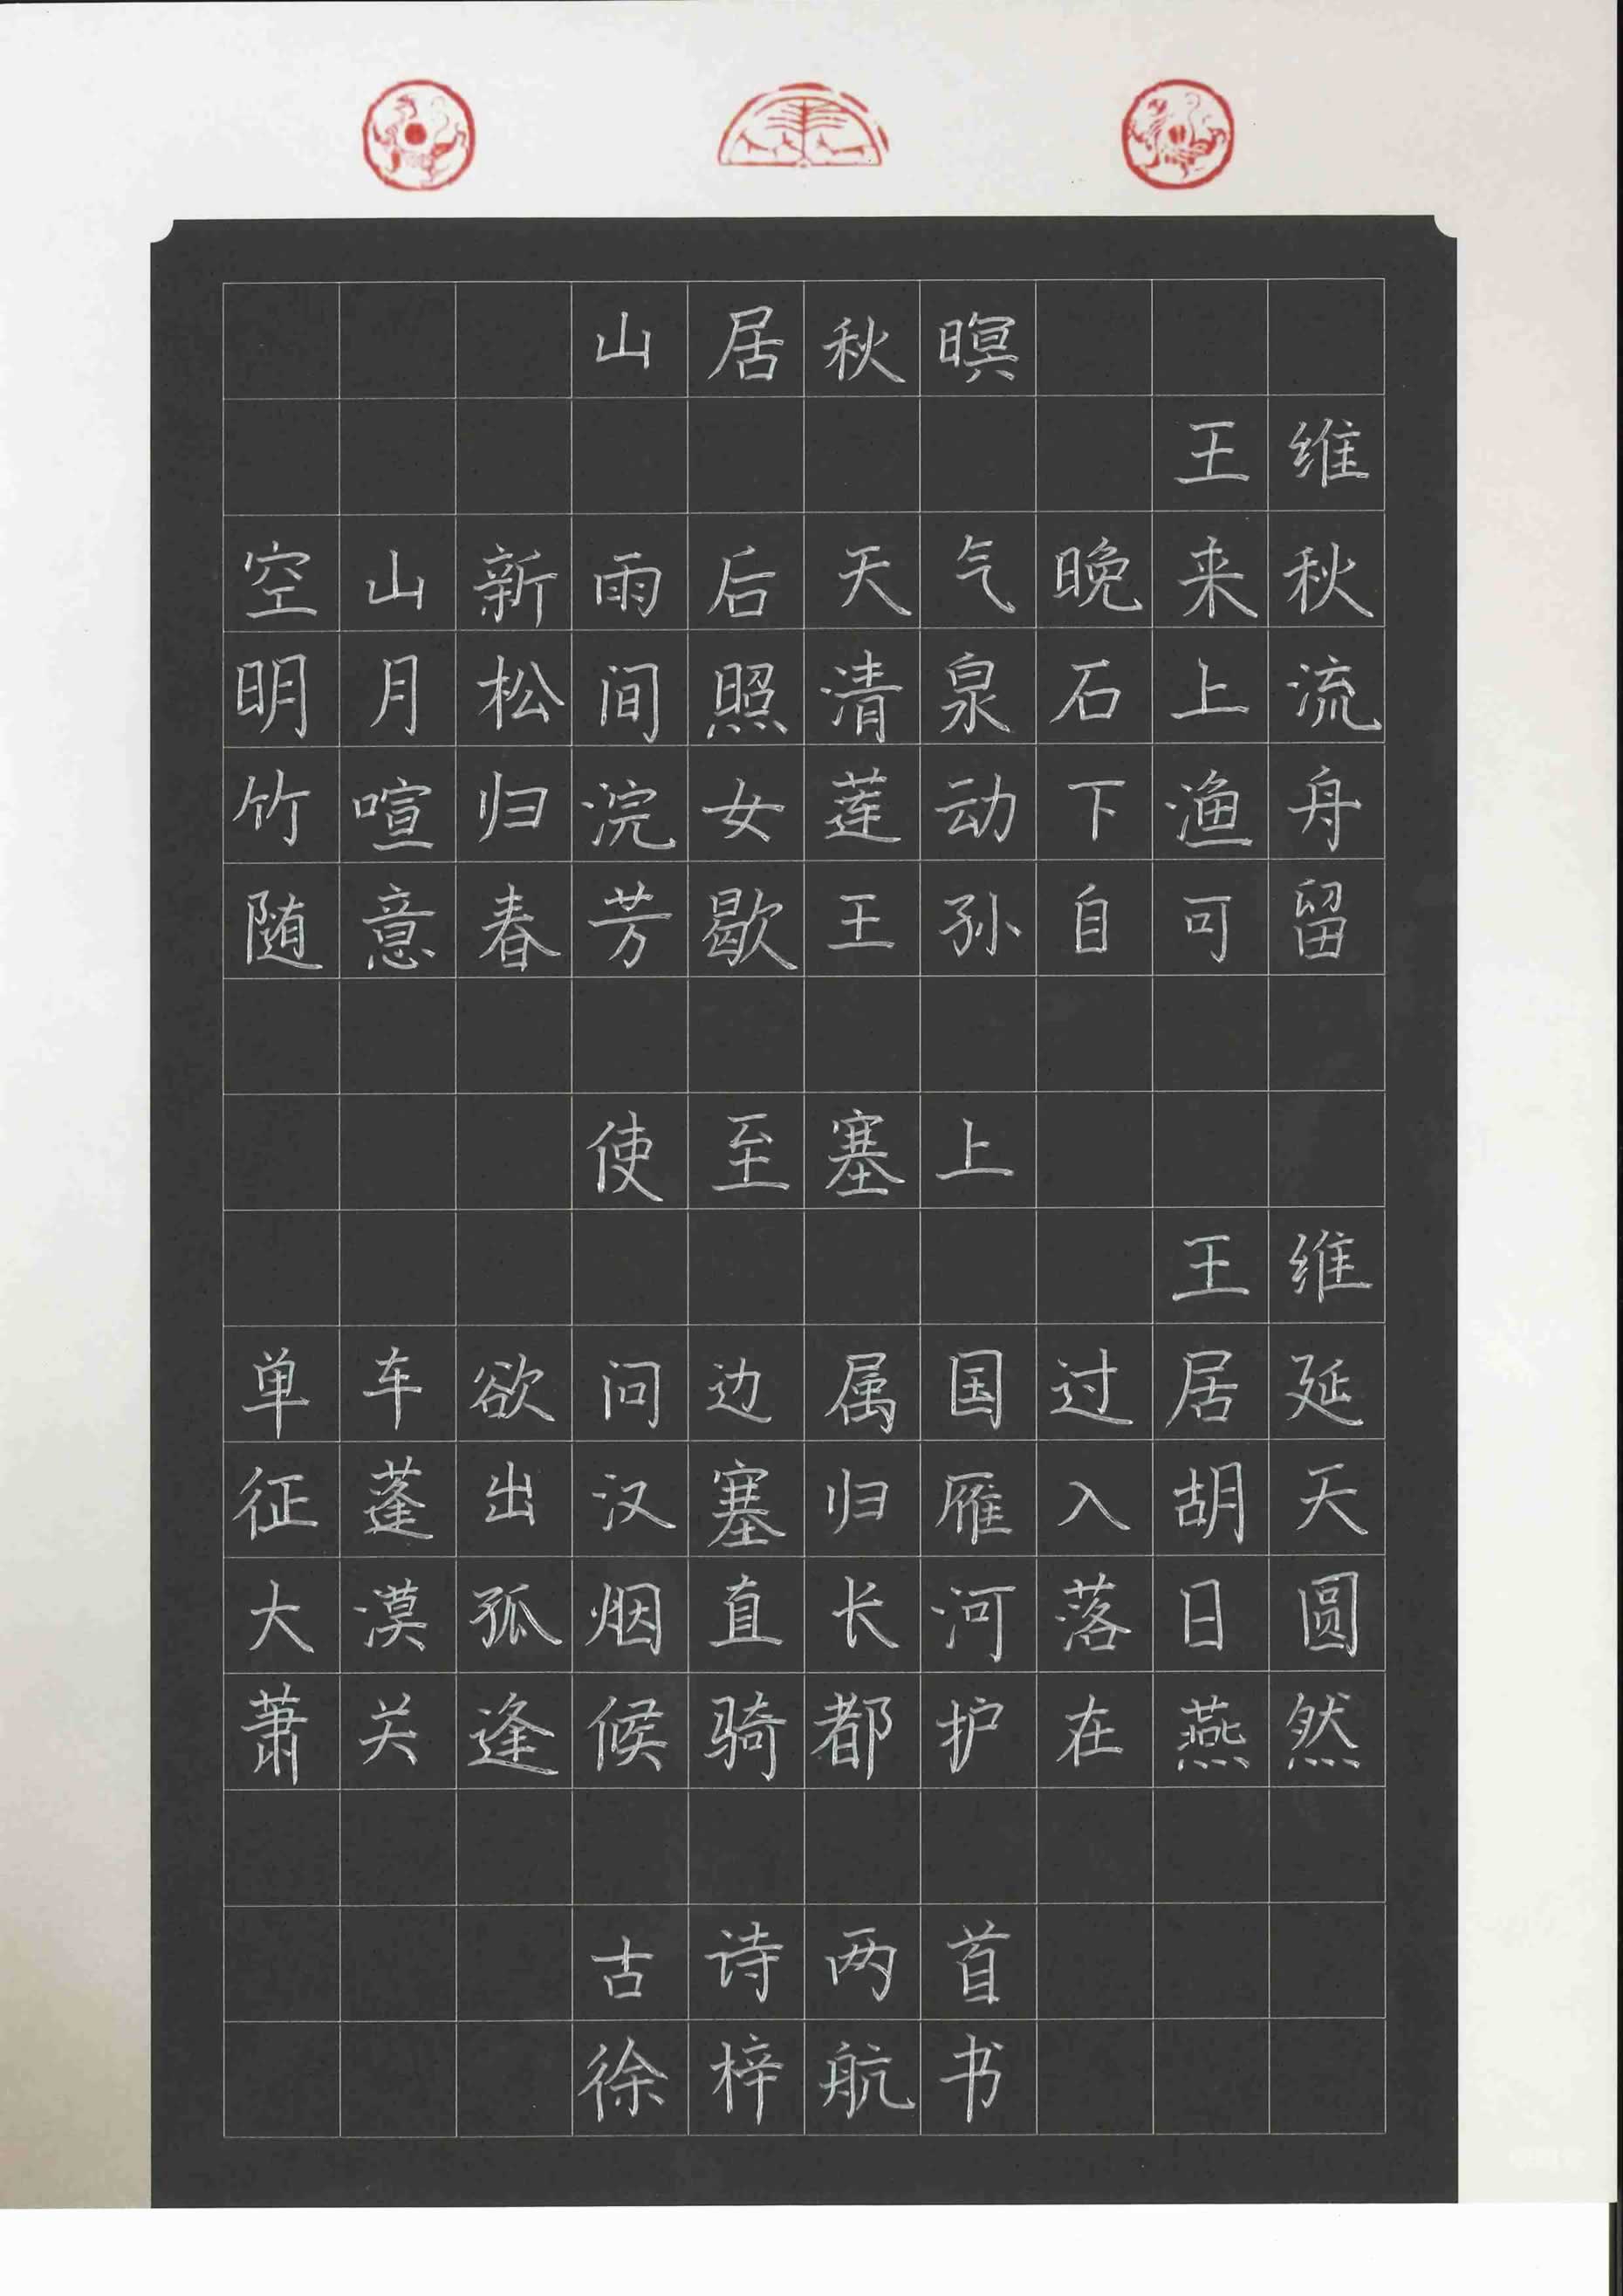 山居秋暝
王维
空山新雨后天气晚来秋
明月松间照清泉石上流
竹喧归浣女莲动下渔舟
随意春芳歇王孙自可留
使至塞上
王维
单车欲问边属国过居延
征蓬出汉塞归雁入胡天
大漠孤烟直长河落日圆
萧关逢候骑都护在燕然
古诗两首
徐梓航书